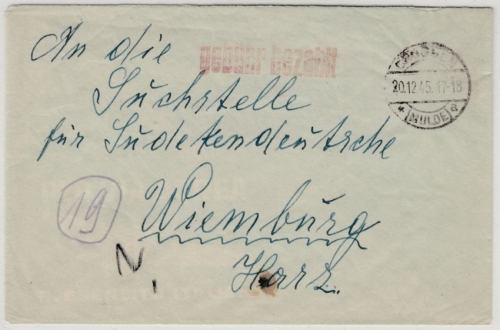 An die
gebühr bezahlt
Suchstelle
20.12.45.17-18
* (MULDE) a
für Sudetendeutsche
19
Wiemburg
Harz.